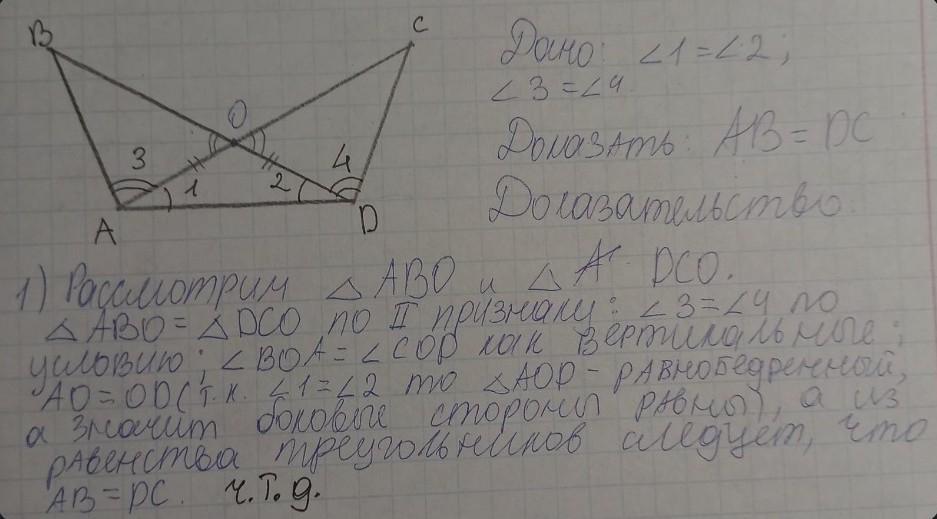 B
C
O
3
4
1
2
A
D
Дано: ∠1=∠2;
∠3=∠4
Доказать: AB=DC
Доказательство.
1) Рассмотрим △ABO и △ DCO.
△ABO=△DCO по II признаку: ∠3=∠4 по
условию; ∠BOA=∠COD как вертикальные;
AO=OD(т.к. ∠1=∠2 то △AOD-равнобедренный,
а значит боковые стороны равны), а из
равенства треугольников следует, что
AB=DC. ч.т.д.